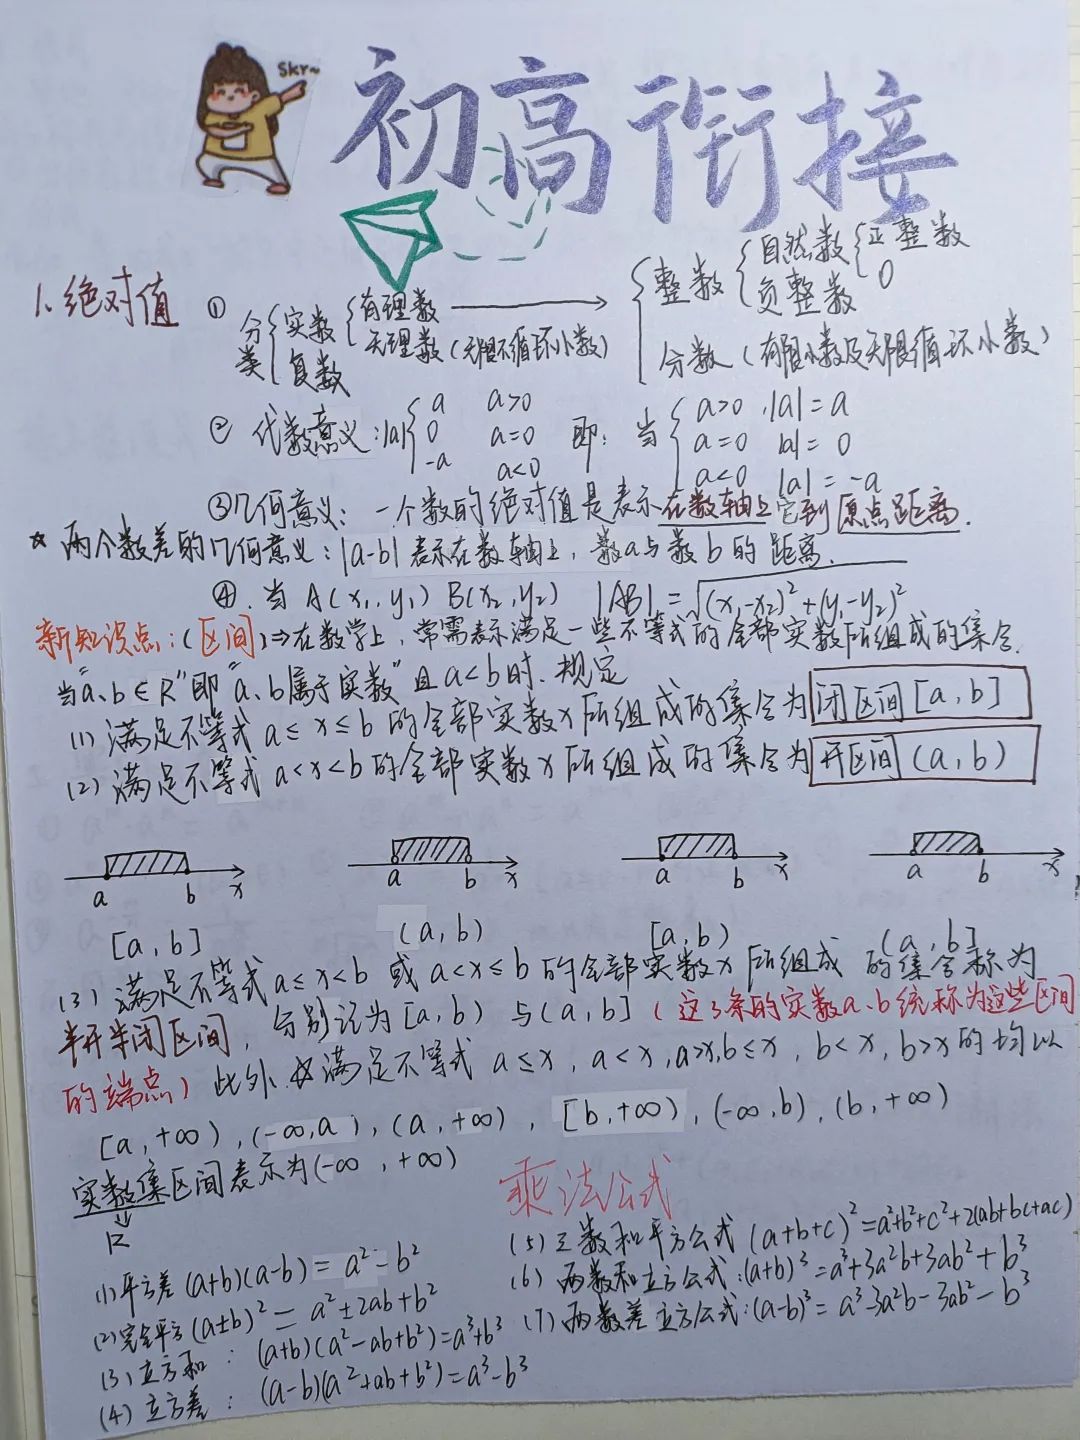 SKY~
初高衔接
1.绝对值 ① 分类{实数{有理数→{整数{自然数{正整数
0
负整数
分数(有限小数及无限循环小数)
无理数(无限不循环小数)
复数
② 代数意义:|a|{a a>0 即:当{a>0,|a|=a
0 a=0 a=0 |a|=0
-a a<0 a<0 |a|=-a
③几何意义:一个数的绝对值是表示在数轴上它到原点距离.
☆两个数差的几何意义:|a-b|表示在数轴上,数a与数b的距离.
④.当A(x₁,y₁) B(x₂,y₂) |AB|=√(x₁-x₂)²+(y₁-y₂)²
新知识点:(区间)⇒在数学上,常需表示满足一些不等式的全部实数所组成的集合.
当"a、b∈R"即"a、b属于实数"且a<b时.规定
(1)满足不等式a≤x≤b的全部实数x所组成的集合为闭区间[a,b]
(2)满足不等式a<x<b的全部实数x所组成的集合为开区间(a,b)
a b x a b x a b x a b x
[a,b] (a,b) [a,b) (a,b]
(3)满足不等式a≤x<b或a<x≤b的全部实数x所组成的集合称为
半开半闭区间,分别记为[a,b)与(a,b](这3条的实数a、b统称为这些区间
的端点)此外.满足不等式a≤x,a<x,a>x,b≤x,b<x,b>x的均以
[a,+∞),(-∞,a),(a,+∞),[b,+∞),(-∞,b),(b,+∞)
实数集区间表示为(-∞,+∞)
R
乘法公式
(1)平方差(a+b)(a-b)=a²-b²
(2)完全平方(a±b)²=a²±2ab+b²
(3)立方和:(a+b)(a²-ab+b²)=a³+b³
(4)立方差:(a-b)(a²+ab+b²)=a³-b³
(5)三数和平方公式(a+b+c)²=a²+b²+c²+2(ab+bc+ac)
(6)两数和立方公式:(a+b)³=a³+3a²b+3ab²+b³
(7)两数差立方公式:(a-b)³=a³-3a²b-3ab²-b³